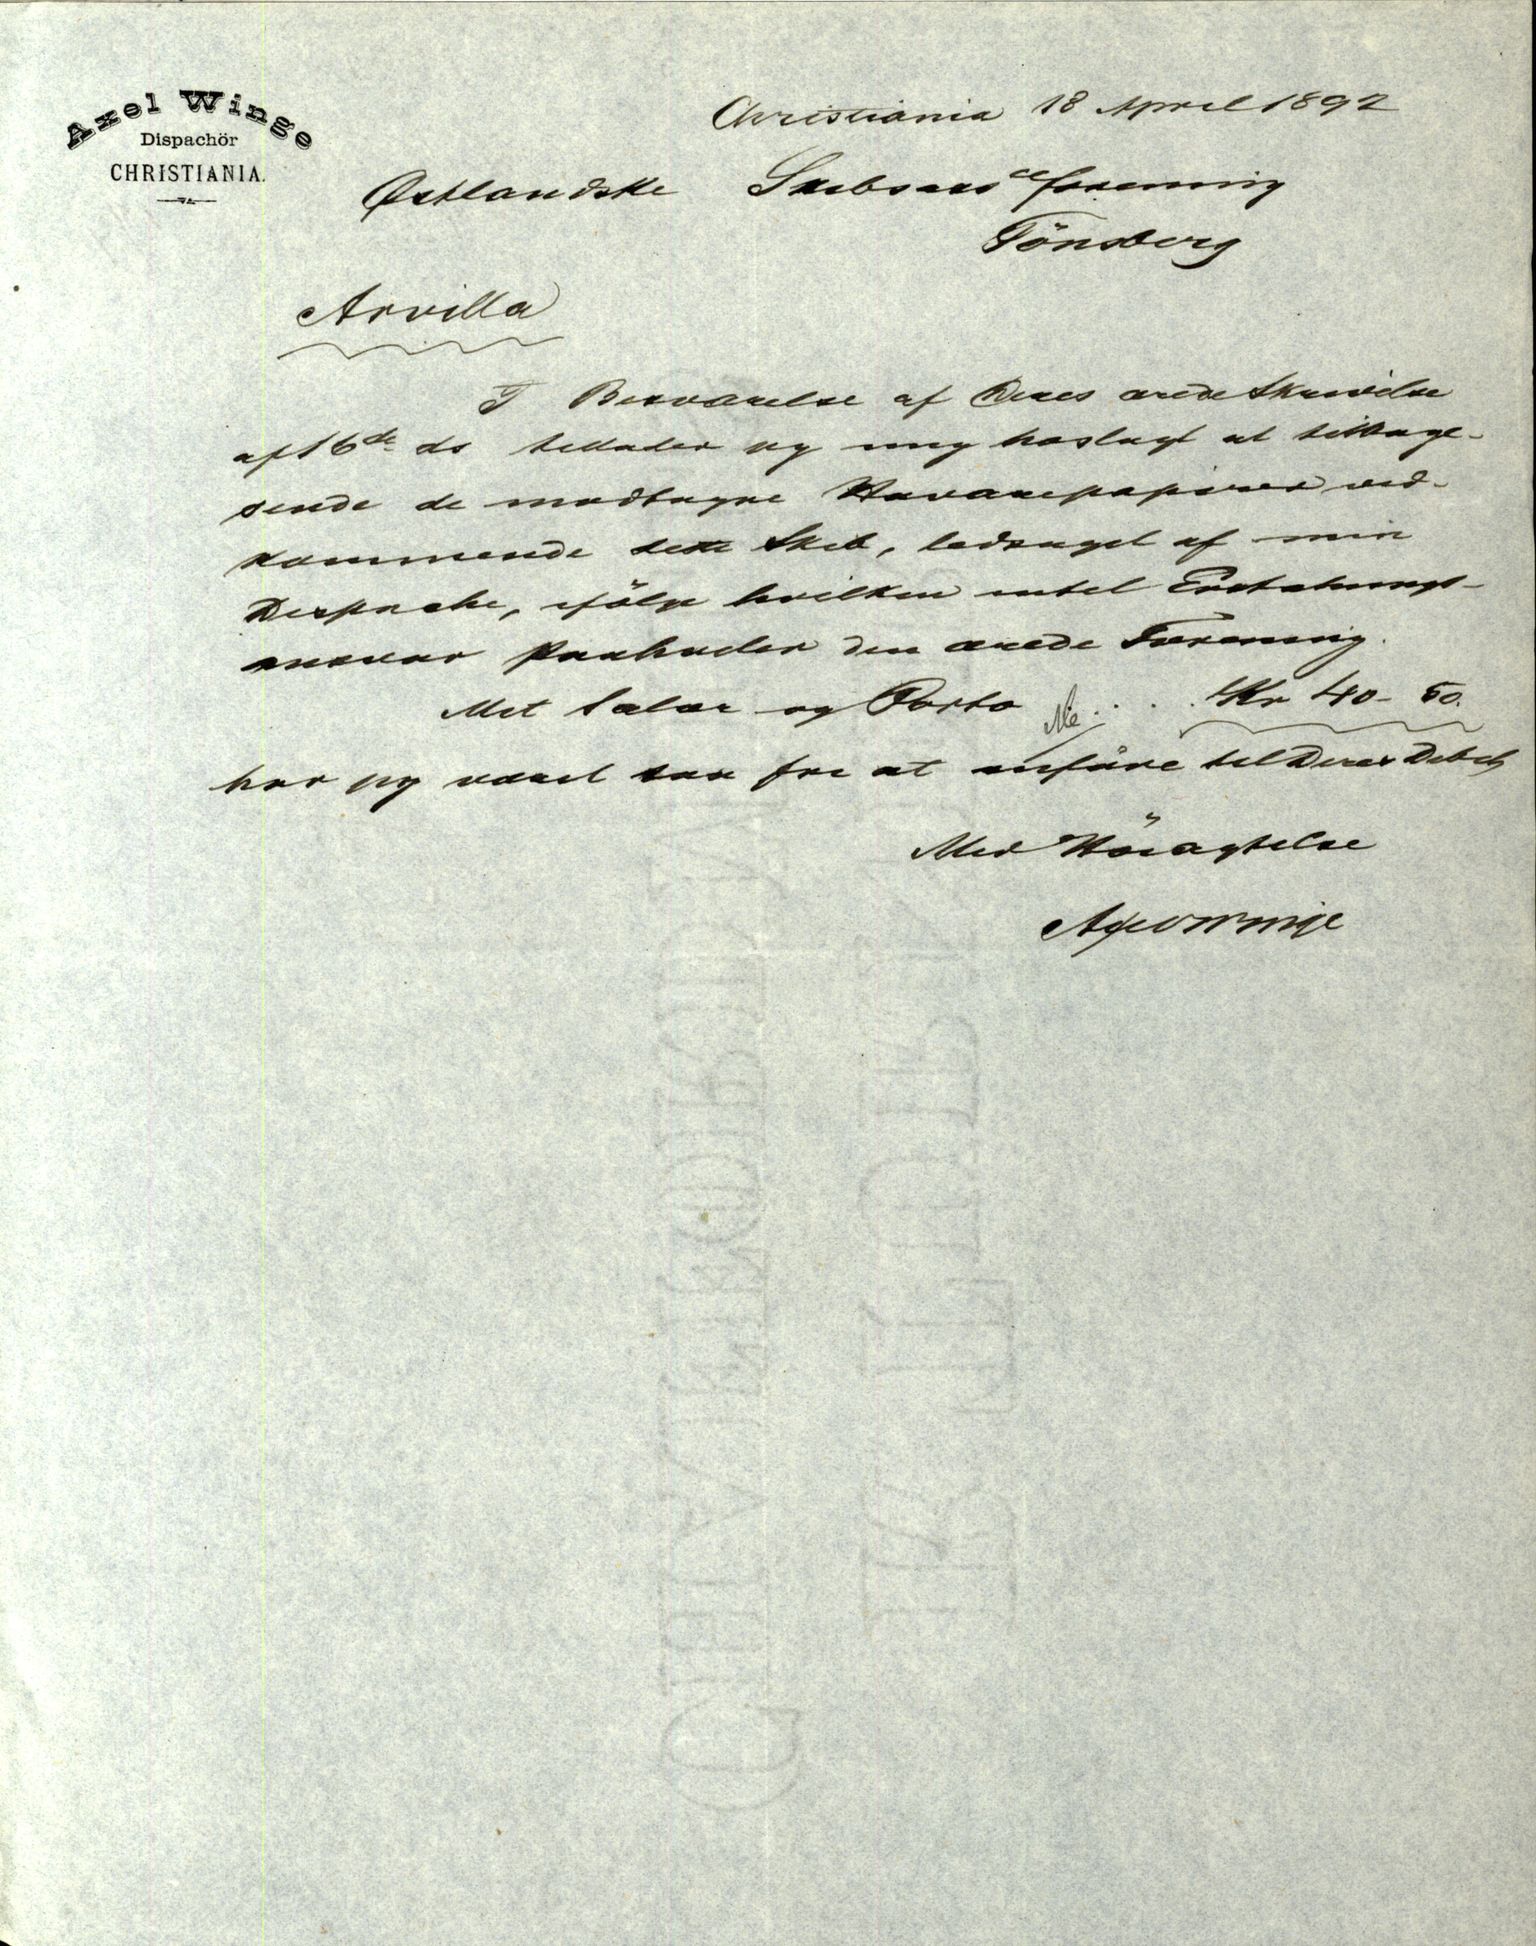 Axel Winge
Dispachör
CHRISTIANIA.
Christiania 18 April 1892
Østlandske Skibsass<sup>ce</sup>forening
Tönsberg
Arvilla
I Besvarelse af Deres ærede Skrivelse
af 16<sup>de</sup> ds tillader jeg mig hoslagt at tilbage-
sende de modtagne Havaripapirer ved-
kommende dette Skib, ledsaget af min
Dispache, ifölge hvilken intet Erstatnings-
ansvar paahviler den ærede Forening.
Mit Salær og Porto . . . . Kr 40-50.
har jeg været saa fri at anföre til Deres Debet
Med Höiagtelse
Axel Winge